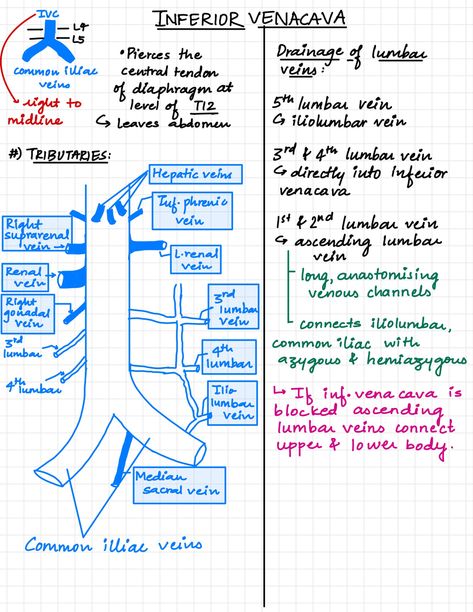 INFERIOR VENACAVA
IVC
L4
L5
common iliac
veins
right to
midline
• Pierces the
central tendon
of diaphragm at
level of T12
↳ leaves abdomen
#) TRIBUTARIES:
Hepatic veins
Inf. phrenic
vein
Right
suprarenal
vein
L. renal
vein
Renal
vein
Right
gonadal
vein
3rd
lumbar
vein
3rd
lumbar
4th
lumbar
4th lumbar
Ilio
lumbar
vein
Median
sacral vein
Common illiac veins
Drainage of lumbar
veins:
5th lumbar vein
↳ iliolumbar vein
3rd & 4th lumbar vein
↳ directly into Inferior
venacava
1st & 2nd lumbar vein
↳ ascending lumbar
vein
long, anastomising
venous channels
connects iliolumbar,
common iliac with
azygous & hemiazygous
↳ If inf. vena cava is
blocked ascending
lumbar veins connect
upper & lower body.